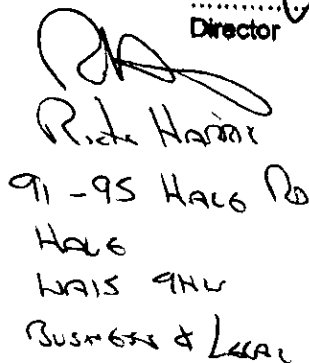 Director
91-95 HALE RD
HALE
WA15 9HW
BUSINESS & LEGAL